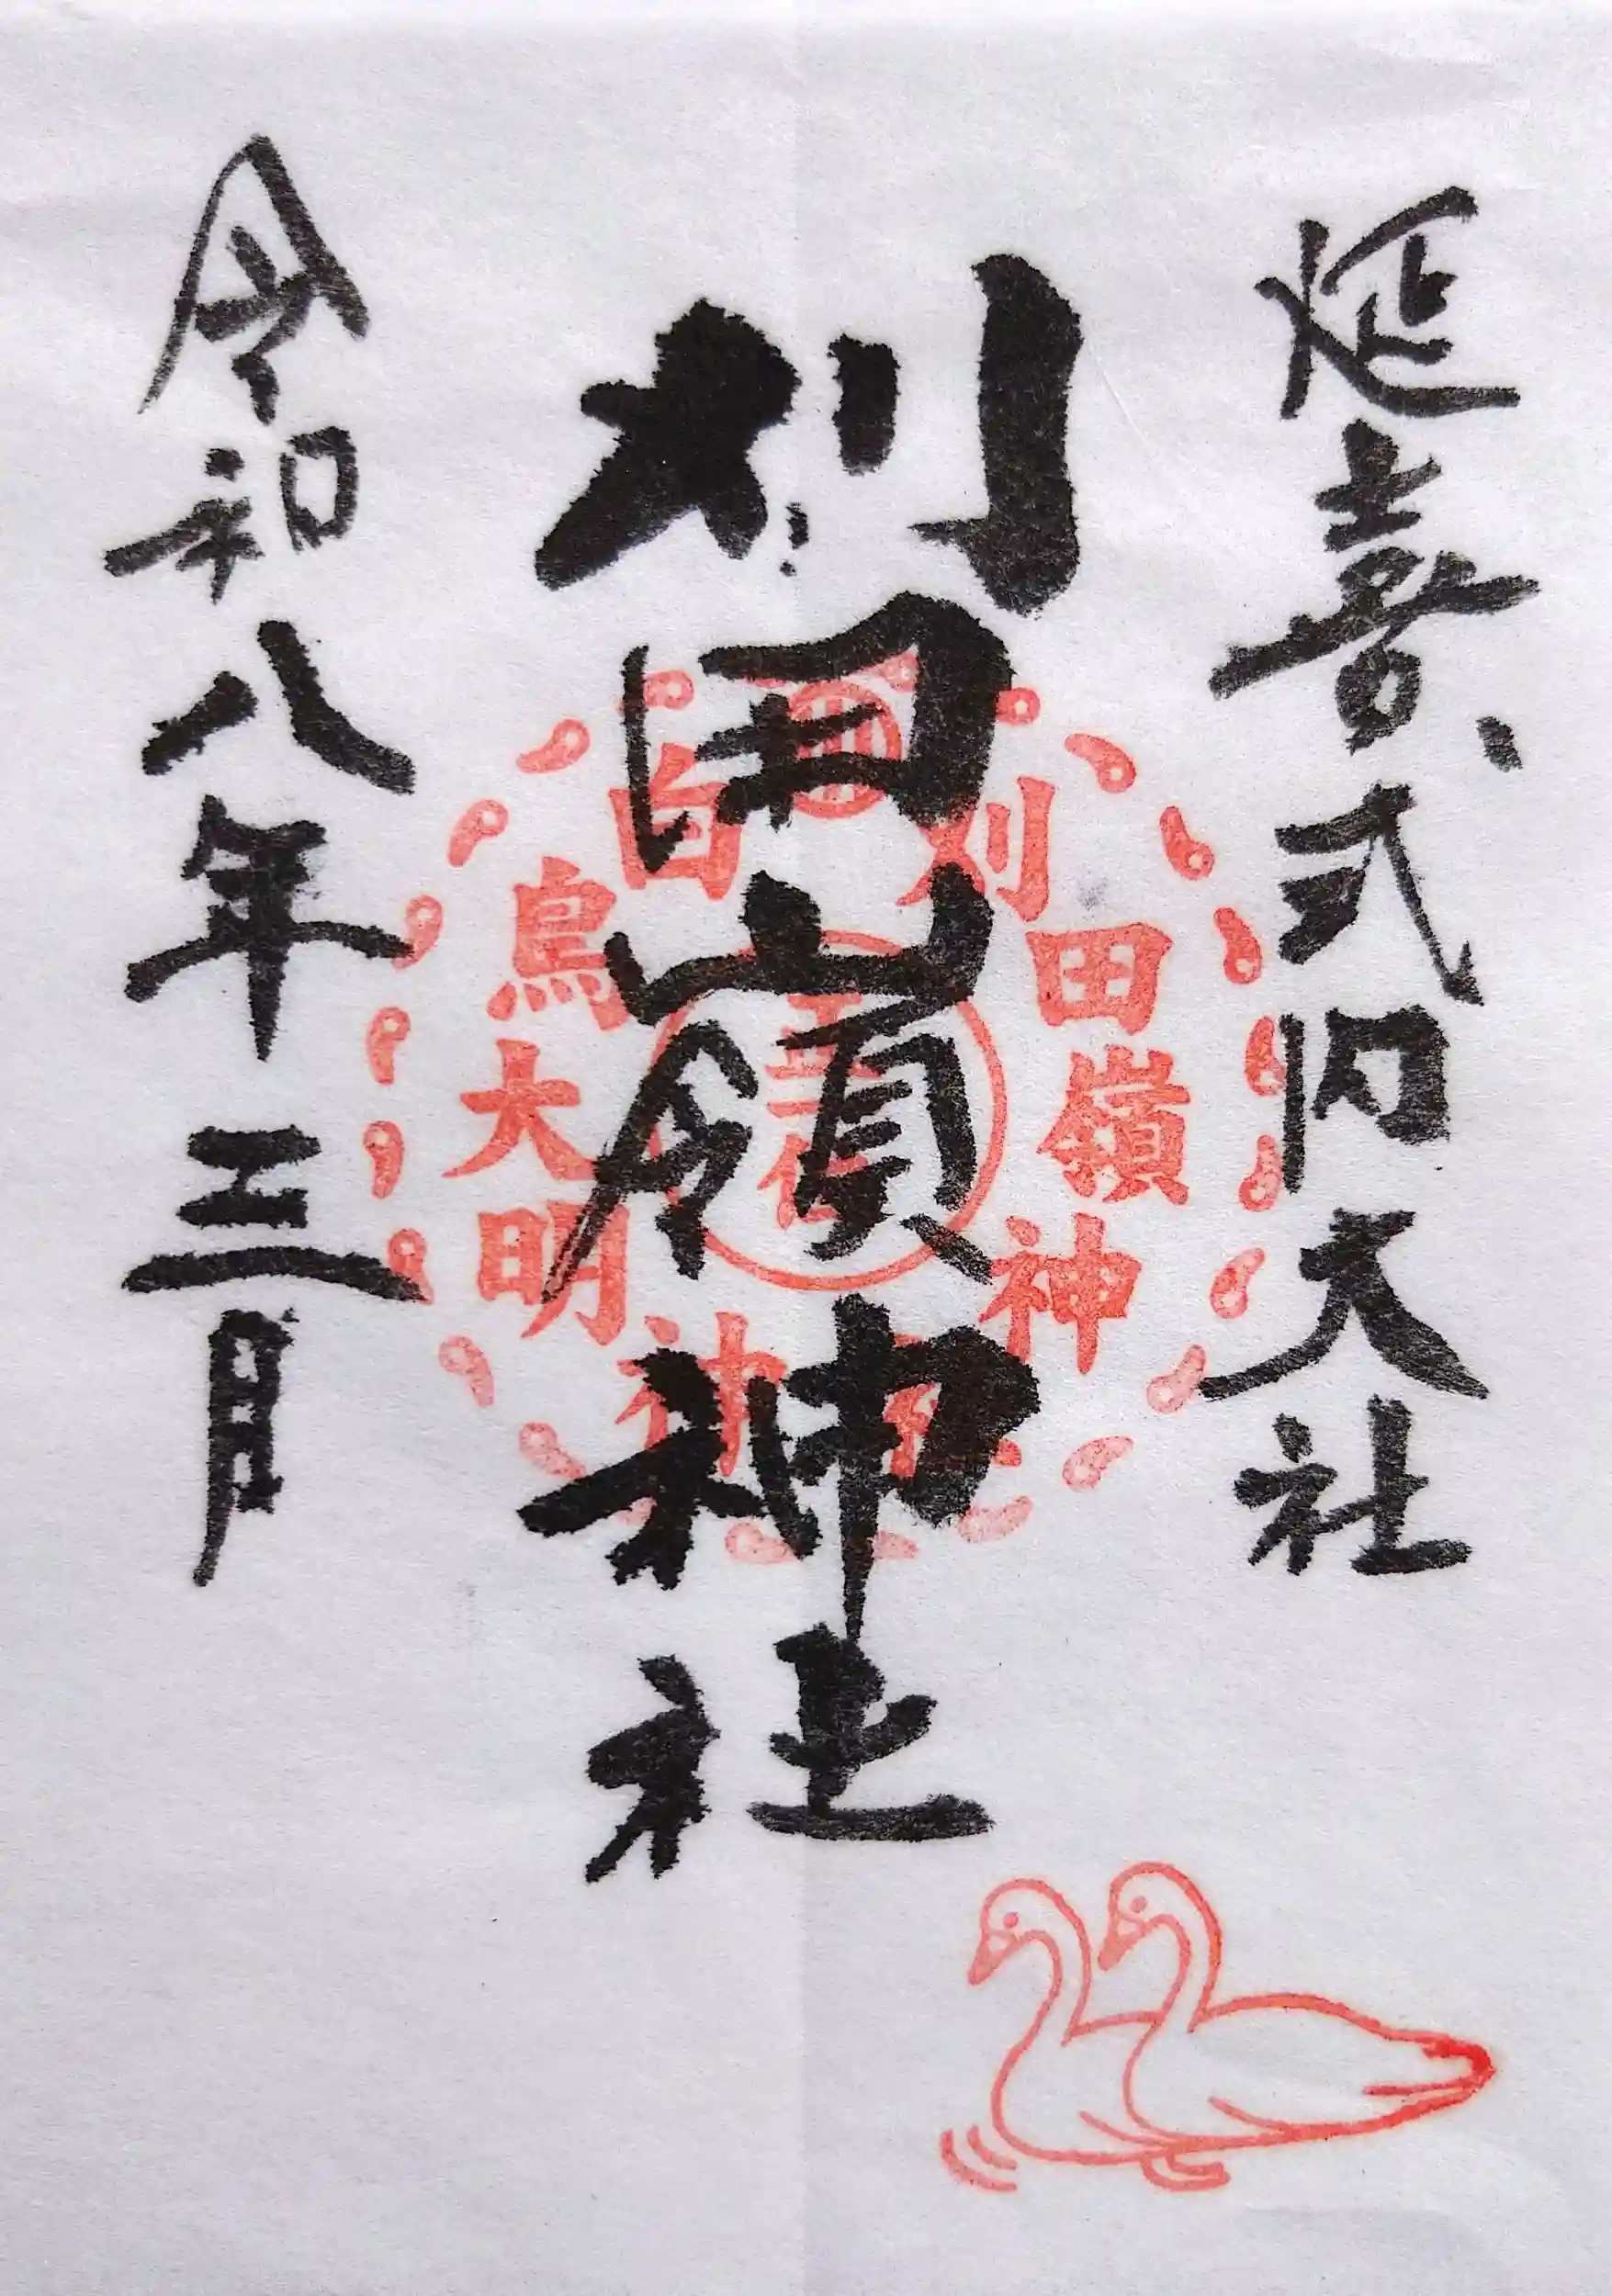 延喜式内大社
刈田嶺神社
令和八年三月
刈田嶺神
白鳥大明神